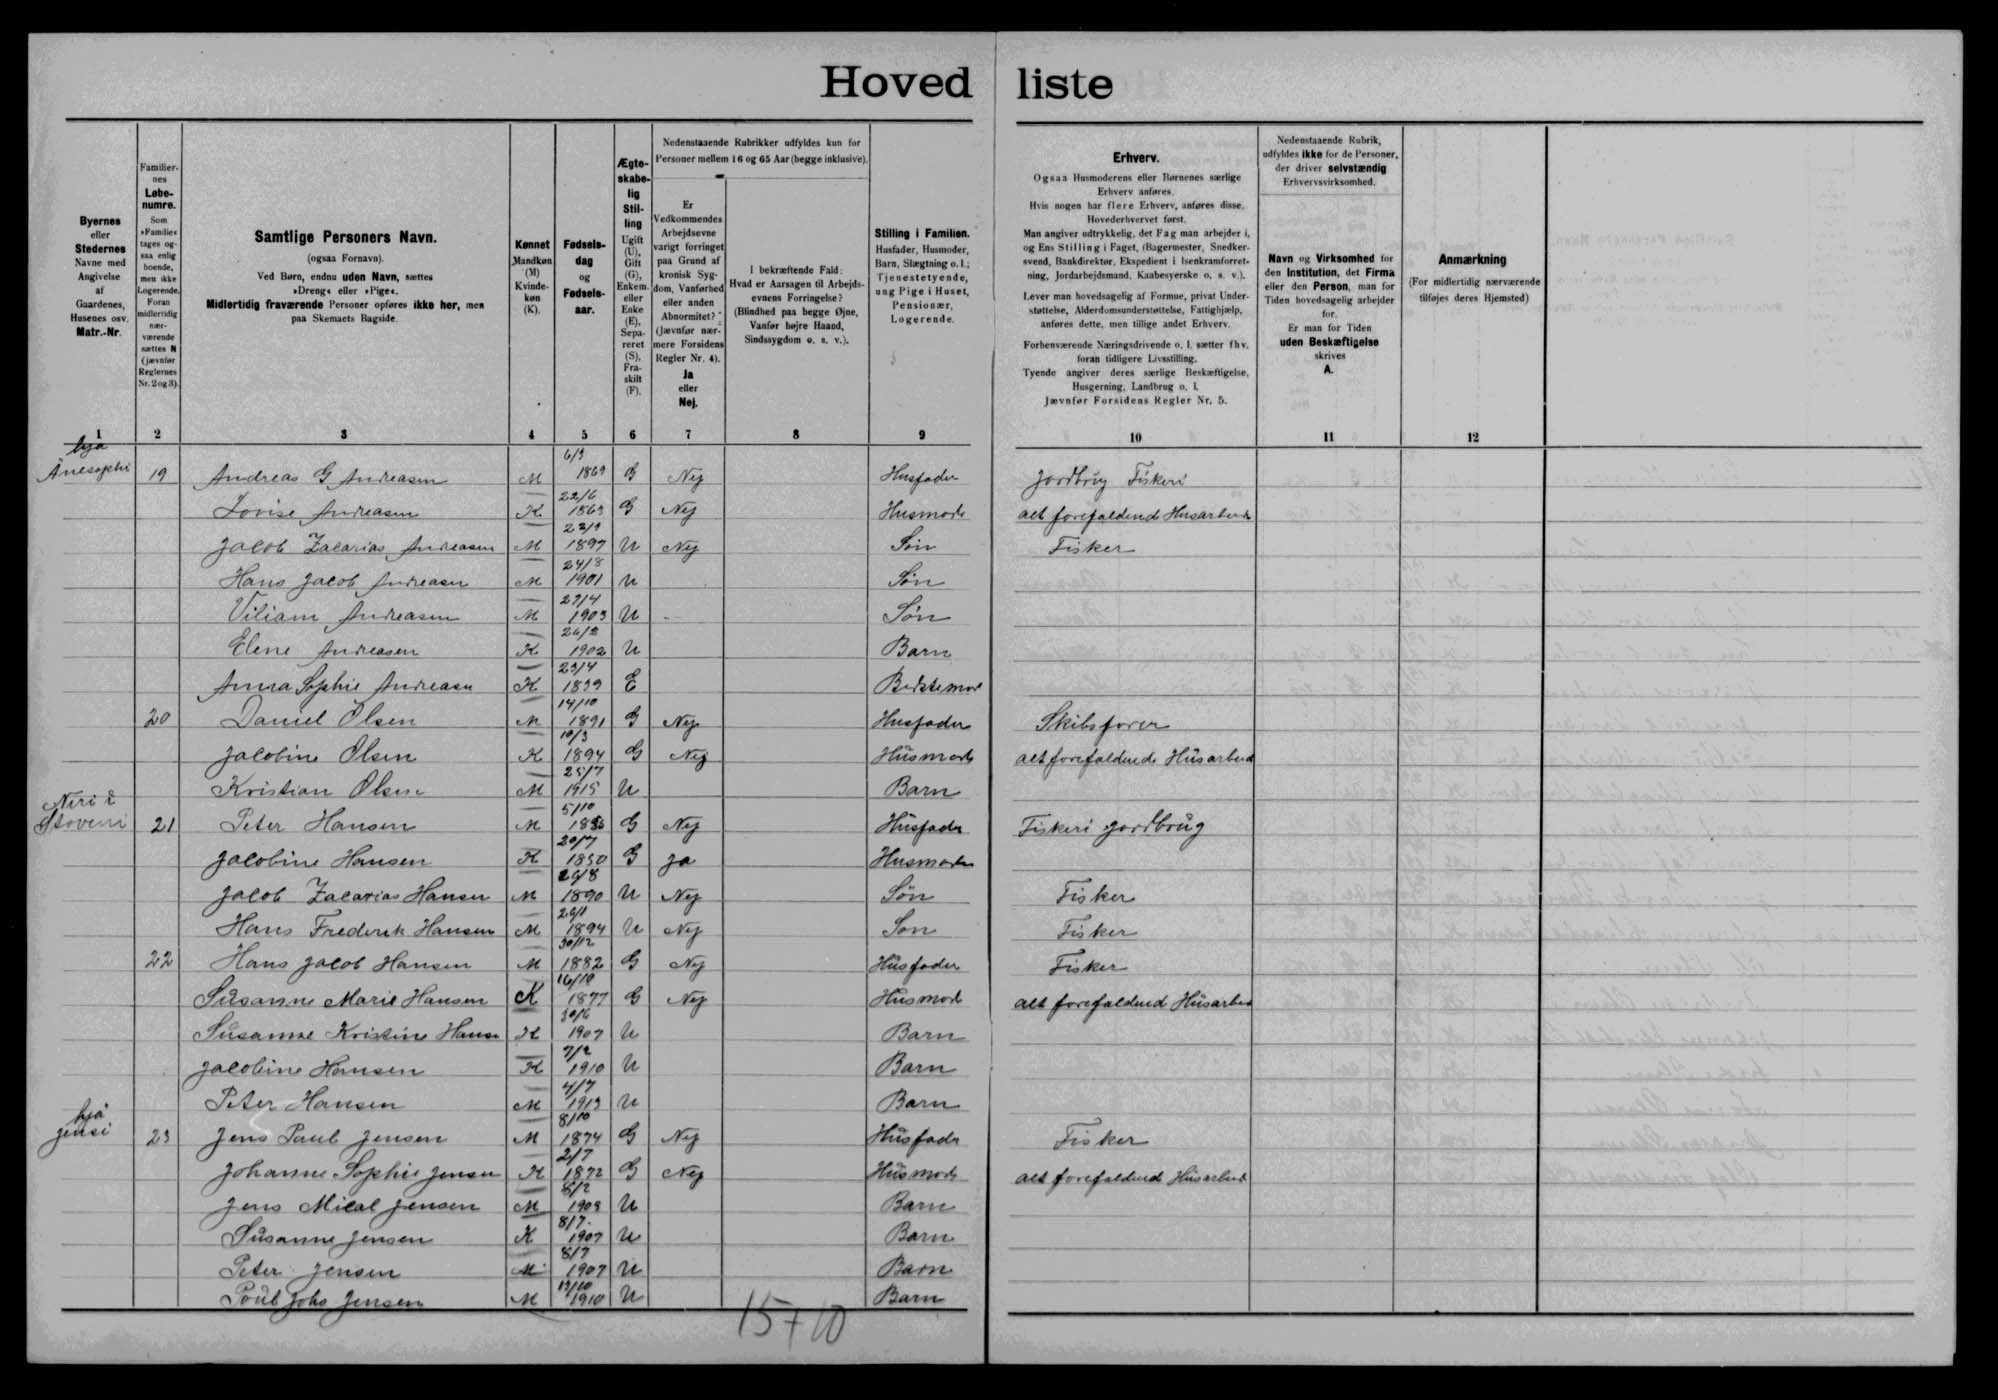 Hoved liste
Byernes
eller
Stedernes
Navne med
Angivelse
af
Gaardenes,
Husenes osv.
Matr.-Nr.
Familier-
nes
Løbe-
numre.
Som
»Familie«
tages og-
saa enlig
boende,
men ikke
Logerende.
Foran
midlertidig
nær-
værende
sættes N
(jævnfør
Reglernes
Nr. 2 og 3).
Samtlige Personers Navn.
(ogsaa Fornavn).
Ved Børn, endnu uden Navn, sættes
»Dreng« eller »Pige«.
Midlertidig fraværende Personer opføres ikke her, men
paa Skemaets Bagside.
Kønnet
Mandkøn
(M)
Kvinde-
køn
(K).
Fødsels-
dag
og
Fødsels-
aar.
Ægte-
skabe-
lig
Stil-
ling
Ugift
(U),
Gift
(G),
Enkem.
eller
Enke
(E),
Sepa-
reret
(S),
Fra-
skilt
(F).
Nedenstaaende Rubrikker udfyldes kun for
Personer mellem 16 og 65 Aar (begge inklusive).
Er
Vedkommendes
Arbejdsevne
varigt forringet
paa Grund af
kronisk Syg-
dom, Vanførhed
eller anden
Abnormitet?
(Jævnfør nær-
mere Forsidens
Regler Nr. 4).
Ja
eller
Nej.
I bekræftende Fald:
Hvad er Aarsagen til Arbejds-
evnens Forringelse?
(Blindhed paa begge Øjne,
Vanfør højre Haand,
Sindssygdom o. s. v.).
Stilling i Familien.
Husfader, Husmoder,
Barn, Slægtning o. l.;
Tjenestetyende,
ung Pige i Huset,
Pensionær,
Logerende.
Erhverv.
Ogsaa Husmoderens eller Børnenes særlige
Erhverv anføres.
Hvis nogen har flere Erhverv, anføres disse,
Hovederhvervet først.
Man angiver udtrykkelig, det Fag man arbejder i,
og Ens Stilling i Faget, (Bagermester, Snedker-
svend, Bankdirektør, Ekspedient i Isenkramforret-
ning, Jordarbejdsmand, Kaabesyerske o. s. v.).
Lever man hovedsagelig af Formue, privat Under-
støttelse, Alderdomsunderstøttelse, Fattighjælp,
anføres dette, men tillige andet Erhverv.
Forhenværende Næringsdrivende o. l. sætter fhv.
foran tidligere Livsstilling.
Tyende angiver deres særlige Beskæftigelse,
Husgerning, Landbrug o. l.
Jævnfør Forsidens Regler Nr. 5.
Nedenstaaende Rubrik,
udfyldes ikke for de Personer,
der driver selvstændig
Erhvervsvirksomhed.
Navn og Virksomhed for
den Institution, det Firma
eller den Person, man for
Tiden hovedsagelig arbejder
for.
Er man for Tiden
uden Beskæftigelse
skrives
A.
Anmærkning
(For midlertidig nærværende
tilføjes deres Hjemsted)
1 2 3 4 5 6 7 8 9 10 11 12
hja
Ånesophi 19 Andreas G Andreasen M 6/3 1869 G Nej Husfader Jordbrug Fiskeri
Lovise Andreasen K 22/6 1863 G Nej Husmode alt forefaldend Husarbeid
Jacob Zacarias Andreasen M 1897 U Nej Søn Fisker
Hans Jacob Andreasen M 24/8 1901 U Søn
Viliam Andreasen M 27/4 1903 U Søn
Elene Andreasen K 26/2 1902 U Barn
Anna Sophie Andreasn K 23/4 1839 E Bedstemod
20 Daniel Olsen M 14/10 1891 G Nej Husfader Skibsfører
Jacobine Olsen K 10/3 1894 G Nej Husmode alt forefaldende Husarbeid
Kristian Olsen M 25/7 1915 U Barn
Neri i
Stoveni 21 Peter Hansen M 5/10 G Nej Husfader Fiskeri Jordbrug
Jacobine Hansen K 20/7 1850 G Ja Husmoder
Jacob Zacarias Hansen M 1890 U Nej Søn Fisker
Hans Frederik Hansen M 26/1 1894 U Nej Søn Fisker
22 Hans Jacob Hansen M 30/12 1882 G Nej Husfader Fisker
Susanne Marie Hansen K 16/10 1877 G Nej Husmod alt forefaldend Husarbeid
Susanne Kristine Hanse K 30/6 1907 U Barn
Jacobine Hansen K 7/2 1910 U Barn
Peter Hansen M 4/7 1913 U Barn
hjá
Jensi 23 Jens Paul Jensen M 8/10 1874 G Nej Husfadr Fisker
Johanne Sophie Jensen K 2/7 1872 G Nej Husmode alt forefaldend Husarbeid
Jens Mical Jensen M 8/2 U Barn
Susanne Jensen K 8/7 1907 U Barn
Peter Jensen M 8/7 1907 U Barn
Poul Johs Jensen M 1910 U Barn
15+10